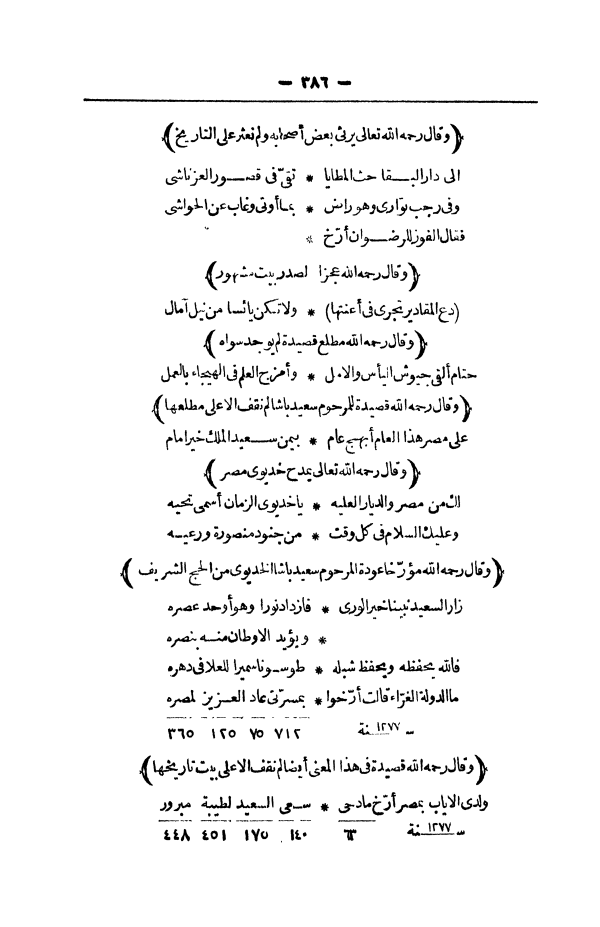 — ٣٨٦ —
﴿ وقال رحمه الله تعالى يرثى بعض أصحابه ولم نعثر على التاريخ ﴾
الى دار البـقا حث المطايا * تقىّ فى قصور العز ناشى
وفى رجب توارى وهو راض * بما أوتى وغاب عن الحواشى
فقال الفوز للرضوان أرّخ *
﴿ وقال رحمه الله عجزا لصدر بيت مشهور ﴾
(دع المقادير تجرى فى أعنتها) * ولا تكن يائسا من نيل آمال
﴿ وقال رحمه الله مطلع قصيدة لم يوجد سواه ﴾
حتام ألقى جيوش اليأس والامل * وأمزج العلم فى الهيجاء بالعمل
﴿ وقال رحمه الله قصيدة للمرحوم سعيد باشا لم نقف الا على مطلعها ﴾
على مصر هذا العام أبهج عام * بيمن سعيد الملك خير امام
﴿ وقال رحمه الله تعالى يمدح خديوى مصر ﴾
لك من مصر والديار العليه * يا خديوى الزمان أسمى تحيه
وعليك السلام فى كل وقت * من جنود منصورة ورعيه
﴿ وقال رحمه الله مؤرّخا عودة المرحوم سعيد باشا الخديوى من الحج الشريف ﴾
زار السعيد نبينا خير الورى * فازداد نورا وهو أوحد عصره
* ويؤيد الاوطان منه بنصره
فالله يحفظه ويحفظ شبله * طوسونا سميرا للعلا فى دهره
ما الدولة الغرّاء قالت أرّخوا * بمسرتى عاد العزيز لمصره
سنة ١٢٧٧ ٧١٢ ٧٥ ١٢٥ ٣٦٥
﴿ وقال رحمه الله قصيدة فى هذا المعنى أيضا لم نقف الا على بيت تاريخها ﴾
ولدى الاياب بمصر أرّخ مادحى * سعى السعيد لطيبة مبرور
سنة ١٢٧٧ ٦٣ ١٤٠ ١٧٥ ٤٥١ ٤٤٨